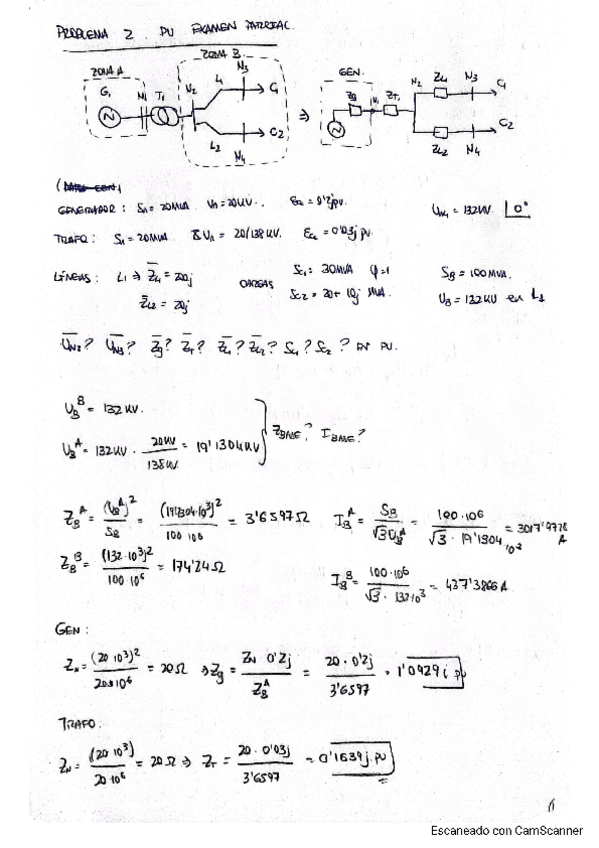 PROBLEMA 2 PU EXAMEN PARCIAL.
ZONA A
ZONA B
G1 N1 T1 N2 L1 N3 C1
L2 N4 C2
⇒
GEN.
Zg N1 ZT1 N2 ZL1 N3 C1
ZL2 N4 C2
GENERADOR: Sn = 20MVA Un = 20KV. Ecc = 0'2jpu. UN4 = 132KV |0°
TRAFO: Sn = 20MVA & Un = 20/138 KV. Ecc = 0'03j pu.
LÍNEAS: L1 ⇒ ZL1 = 200j CARGAS SC1 = 30MVA φ=1 SB = 100MVA.
ZL2 = 20j SC2 = 20+10j MVA. UB = 132KV en L1
UN2? UN3? Zg? ZT? ZL1? ZL2? SC1? SC2? EN PU.
UB^B = 132 KV.
UB^A = 132KV · 20KV/138KV = 19'1304KV } ZBASE? IBASE?
ZB^A = (UB^A)²/SB = (19'1304·10³)²/100·10⁶ = 3'6597Ω IB^A = SB/√3·UB^A = 100·10⁶/√3·19'1304·10³ = 3017'9778 A
ZB^B = (132·10³)²/100·10⁶ = 174'24Ω IB^B = 100·10⁶/√3·132·10³ = 437'3866 A
GEN:
ZN = (20·10³)²/20·10⁶ = 20Ω ⇒ Zg = ZN·0'2j/ZB^A = 20·0'2j/3'6597 = 1'0929j pu
TRAFO:
ZN = (20·10³)/20·10⁶ = 20Ω ⇒ ZT = 20·0'03j/3'6597 = 0'1639j.pu
Escaneado con CamScanner